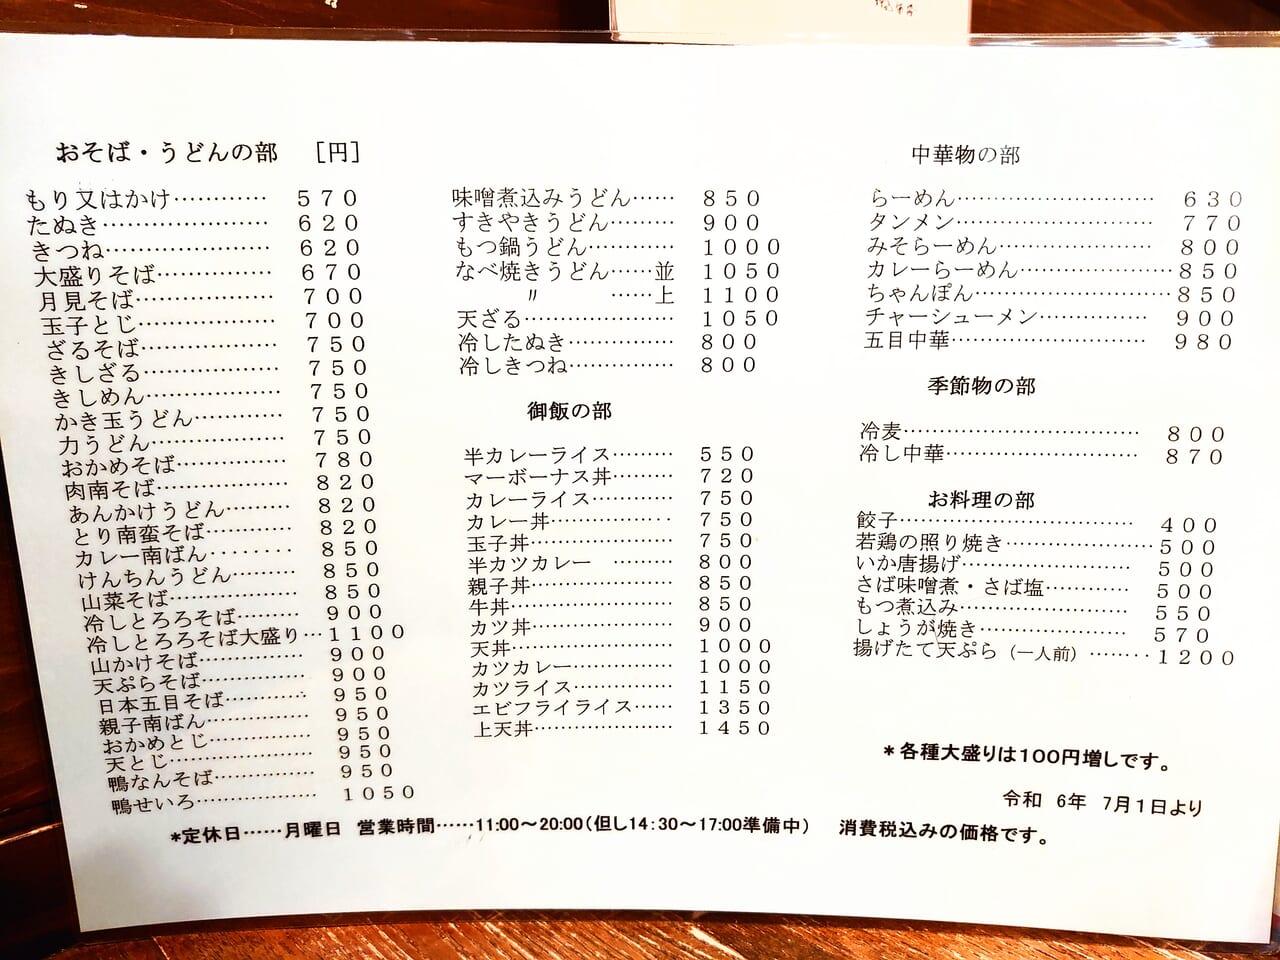 おそば・うどんの部　［円］
もり又はかけ…………　５７０
たぬき………………　６２０
きつね………………　６２０
大盛りそば…………　６７０
月見そば……………　７００
玉子とじ……………　７００
ざるそば……………　７５０
きしざる……………　７５０
きしめん……………　７５０
かき玉うどん………　７５０
力うどん……………　７５０
おかめそば…………　７８０
肉南そば……………　８２０
あんかけうどん………　８２０
とり南蛮そば………　８２０
カレー南ばん………　８５０
けんちんうどん………　８５０
山菜そば……………　８５０
冷しとろろそば………　９００
冷しとろろそば大盛り…１１００
山かけそば…………　９００
天ぷらそば…………　９００
日本五目そば………　９５０
親子南ばん…………　９５０
おかめとじ…………　９５０
天とじ………………　９５０
鴨なんそば…………　９５０
鴨せいろ……………　１０５０
味噌煮込みうどん……　８５０
すきやきうどん………　９００
もつ鍋うどん…………　１０００
なべ焼きうどん……並　１０５０
〃　……上　１１００
天ざる………………　１０５０
冷したぬき…………　８００
冷しきつね…………　８００
御飯の部
半カレーライス………　５５０
マーボーナス丼………　７２０
カレーライス…………　７５０
カレー丼……………　７５０
玉子丼………………　７５０
半カツカレー　………　８００
親子丼………………　８５０
牛丼…………………　８５０
カツ丼………………　９００
天丼…………………　１０００
カツカレー…………　１０００
カツライス…………　１１５０
エビフライライス……　１３５０
上天丼………………　１４５０
中華物の部
らーめん……………………　６３０
タンメン……………………　７７０
みそらーめん………………　８００
カレーらーめん………………８５０
ちゃんぽん……………………８５０
チャーシューメン…………　９００
五目中華……………………　９８０
季節物の部
冷麦…………………………　８００
冷し中華……………………　８７０
お料理の部
餃子…………………………　４００
若鶏の照り焼き………………５００
いか唐揚げ…………………　５００
さば味噌煮・さば塩………　５００
もつ煮込み…………………　５５０
しょうが焼き………………　５７０
揚げたて天ぷら（一人前）……‥１２００
＊各種大盛りは１００円増しです。
令和　６年　７月１日より
*定休日……月曜日　営業時間……11:00～20:00（但し14：30～17:00準備中）　消費税込みの価格です。